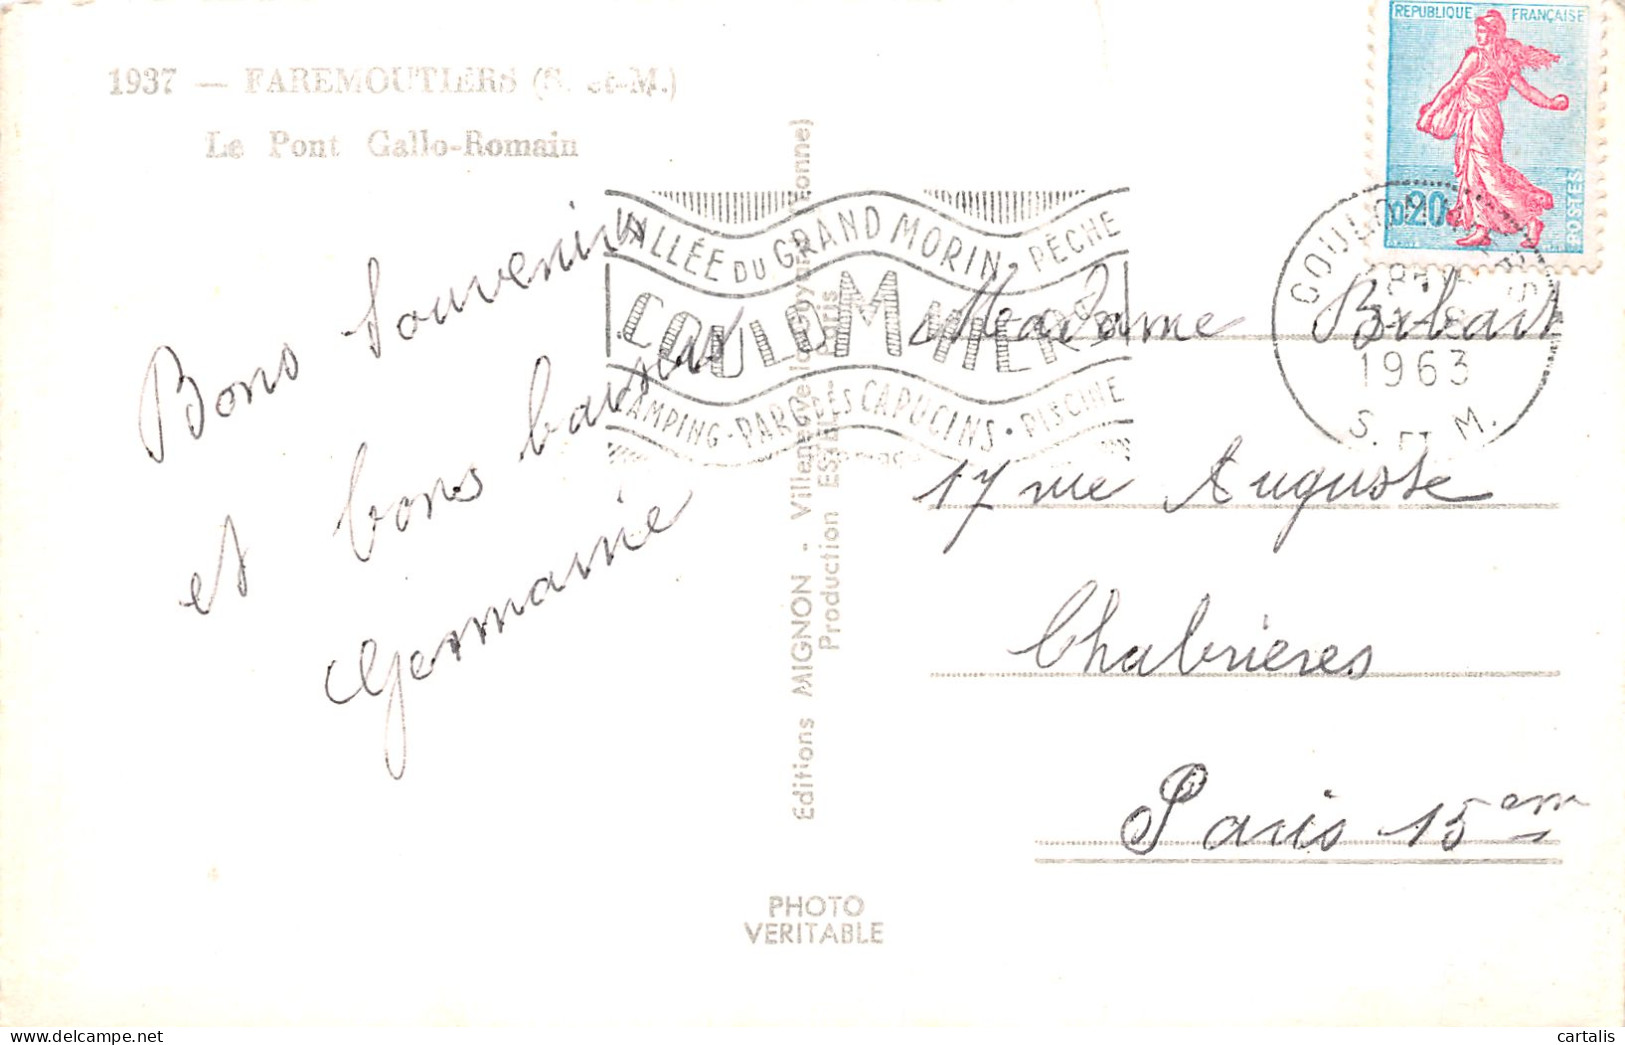 1937 — FAREMOUTIERS (S. et-M.)
Le Pont Gallo-Romain
Bons souvenirs
et bons baisers
Germaine
VALLÉE DU GRAND MORIN. PÊCHE
COULOMMIERS
CAMPING-PARC DES CAPUCINS. PISCINE
Editions MIGNON - Villeneuve-la-Guyard (Yonne)
Production
PHOTO
VERITABLE
REPUBLIQUE FRANÇAISE
0,20
POSTES
COULOMMIERS
1963
S. ET M.
Madame
17 rue Auguste
Chabrieres
Paris 15em
cartalis
https://www.delcampe.net